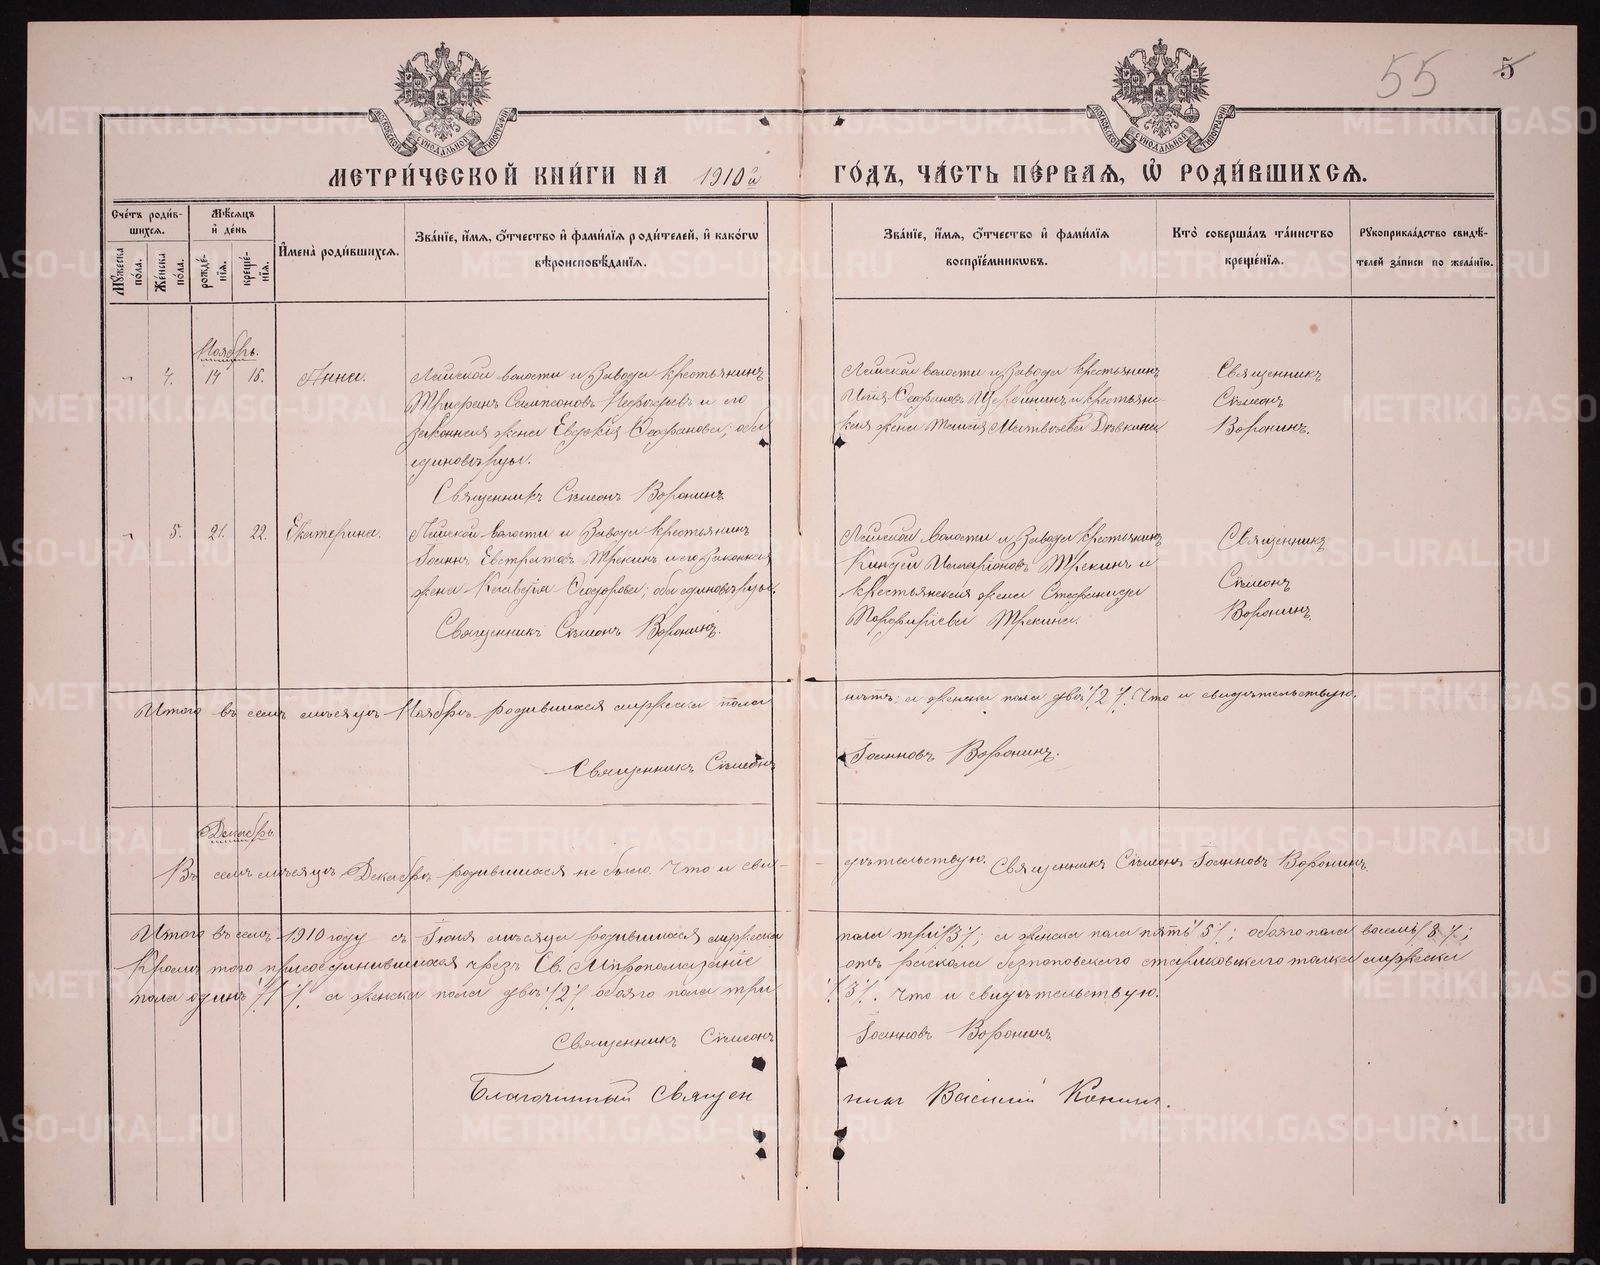 55 5
МЕТРИ́ЧЕСКОЙ КНИ́ГИ НА 1910й ГО́ДЪ, ЧА́СТЬ ПЕ́РВАЯ, Ѡ҆ РОДИ́ВШИХСЯ.
Сче́тъ роди́в-
шихся.
Мꙋ́жеска по́ла.
Же́нска по́ла.
Мѣ́сяцъ
и҆ де́нь
рожде́-
нїя.
креще́-
нїя.
И҆мена̀ роди́вшихся.
Зва́нїе, и҆́мя, ѻ҆́тчество и҆ фами́лїя роди́телей, и҆ како́гѡ
вѣроисповѣ́данїя.
Зва́нїе, и҆́мя, ѻ҆́тчество и҆ фами́лїя
воспрїе́мникѡвъ.
Кто̀ соверша́лъ та́инство
креще́нїя.
Рꙋкоприкла́дство свидѣ́-
телей за́писи по жела́нїю.
Ноябрь.
4. 14 16. Анна.
волости и Завода крестьянинъ
и его
законная жена Евдокія; оба
единовѣрцы.
Священникъ Сѵмеонъ Воронинъ
волости и Завода крестьянинъ
Илія Щербининъ и крестьян-
ская жена Матвѣева
Священникъ
Сѵмеонъ
Воронинъ.
5. 21. 22. Екатерина.
волости и Завода крестьянинъ
Іоаннъ Евстратовъ Трекинъ и его законная
жена Ѳеодорова; оба единовѣрцы.
Священникъ Сѵмеонъ Воронинъ.
волости и Завода крестьянинъ
Иларіоновъ Трекинъ и
крестьянская жена Стефанида
Порфиріева Трекина.
Священникъ
Сѵмеонъ
Воронинъ.
Итого въ семъ мѣсяцѣ Ноябрѣ родившихся мужеска пола нѣтъ; а женска пола двѣ ⁒2⁒. Что и свидѣтельствую.
Священникъ Сѵмеонъ Іоанновъ Воронинъ.
Декабрь.
Въ семъ мѣсяцѣ Декабрѣ родившихся не было. Что и сви-
дѣтельствую. Священникъ Сѵмеонъ Іоанновъ Воронинъ.
Итого въ семъ 1910 году съ Іюня мѣсяца родившихся мужеска пола три ⁒3⁒; а женска пола пять ⁒5⁒; обоего пола восемь ⁒8⁒;
Кромѣ того присоединившихся чрезъ Св. Мѵропомазаніе отъ раскола безпоповскаго стариковскаго толка мужеска
пола одинъ ⁒1⁒ а женска пола двѣ ⁒2⁒ обоего пола три ⁒3⁒. Что и свидѣтельствую.
Священникъ Сѵмеонъ Іоанновъ Воронинъ
Благочинный Священникъ Василій
METRIKI.GASO-URAL.RU